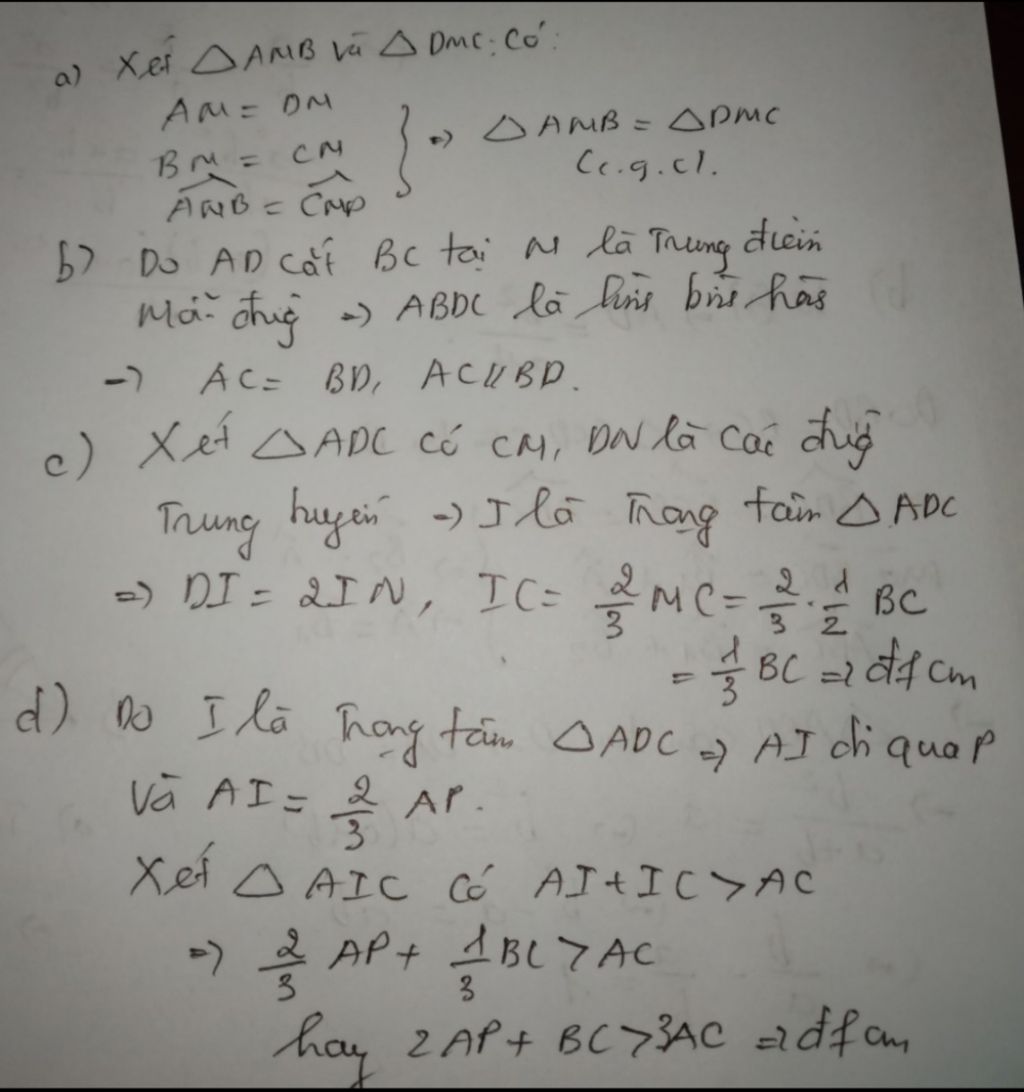 a) Xét △AMB và △DMC: Có:
AM = DM
BM = CM } => △AMB = △DMC
(c.g.c).
AMB = CMD
b) Do AD cắt BC tại M là Trung điểm
Mỗi đường => ABDC là hình bình hành
-> AC = BD, AC // BD.
c) Xét △ADC có CM, DN là các đường
Trung tuyến => I là Trọng tâm △ADC
=> DI = 2IN, IC = 2/3 MC = 2/3 . 1/2 BC
= 1/3 BC => đfcm
d) Do I là Trọng tâm △ADC => AI đi qua P
Và AI = 2/3 AP.
Xét △AIC có AI + IC > AC
=> 2/3 AP + 1/3 BC > AC
hay 2AP + BC > 3AC => đfcm